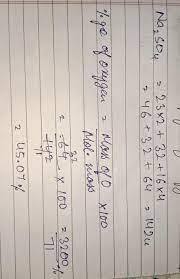 Na2SO4 = 23x2 + 32 + 16x4
= 46 + 32 + 64 = 142u
% ge of oxygen = Mass of O / Mol. mass x 100
= 64 32 / 142 71 x 100 = 3200 / 71 %
= 45.07 %